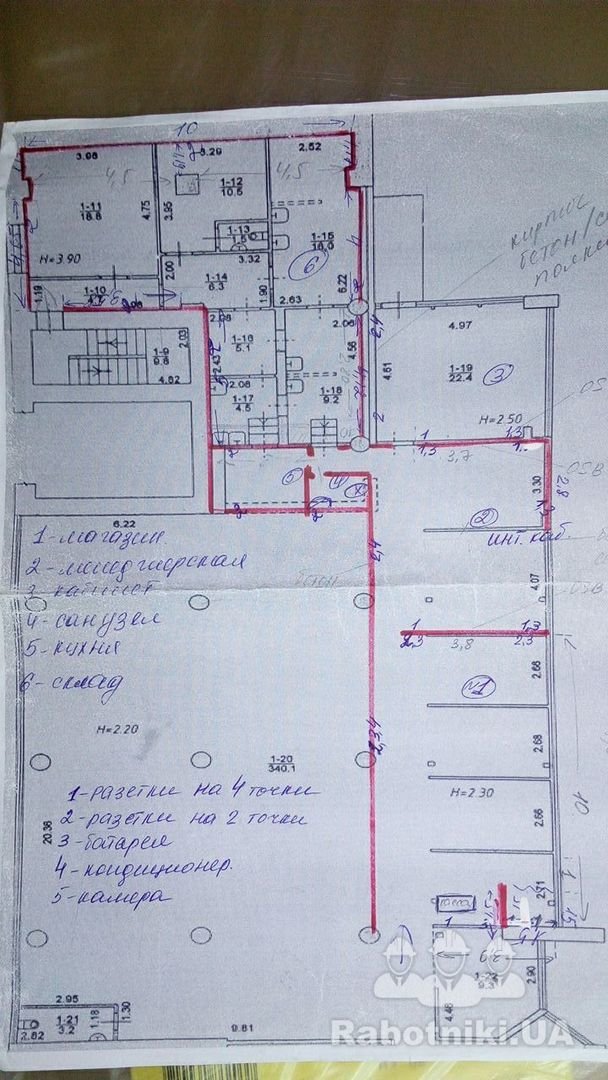 10
3.98
3.29
2.52
4,5
4,5
1-11
18.8
4.75
3.95
1-12
10.5
1-13
1.5
3.32
1-15
16.0
6
H=3.90
2.00
1-14
6.3
1.90
6.22
2.63
1.19
1-10
кирпич
2.03
1-9
9.8
4.82
2.08
1-16
5.1
2.43
2.06
4.56
2,4
4.97
4.61
1-19
22.4
3
2.08
1-17
4.5
1-18
9.2
H=2.50
1,3
1,3
3,7
5
4
2
3.30
2,8
6.22
инт. каб.
1-магазин
2-менеджерская
3-кабинет
4-санузел
5-кухня
6-склад
бетон
2,4
4.07
1
1,3
2,3
3,8
2,3
№1
2.66
H=2.20
1-20
340.1
2,34
2.68
H=2.30
10
2.66
1-разетки на 4 точки
2-разетки на 2 точки
3-батарея
4-кондиционер.
5-камера
20.36
касса
1
2.71
3,9
1-22
9.3
2.90
4.46
2.95
1-21
3.2
1.18
1.30
2.82
9.81
Rabotniki.UA